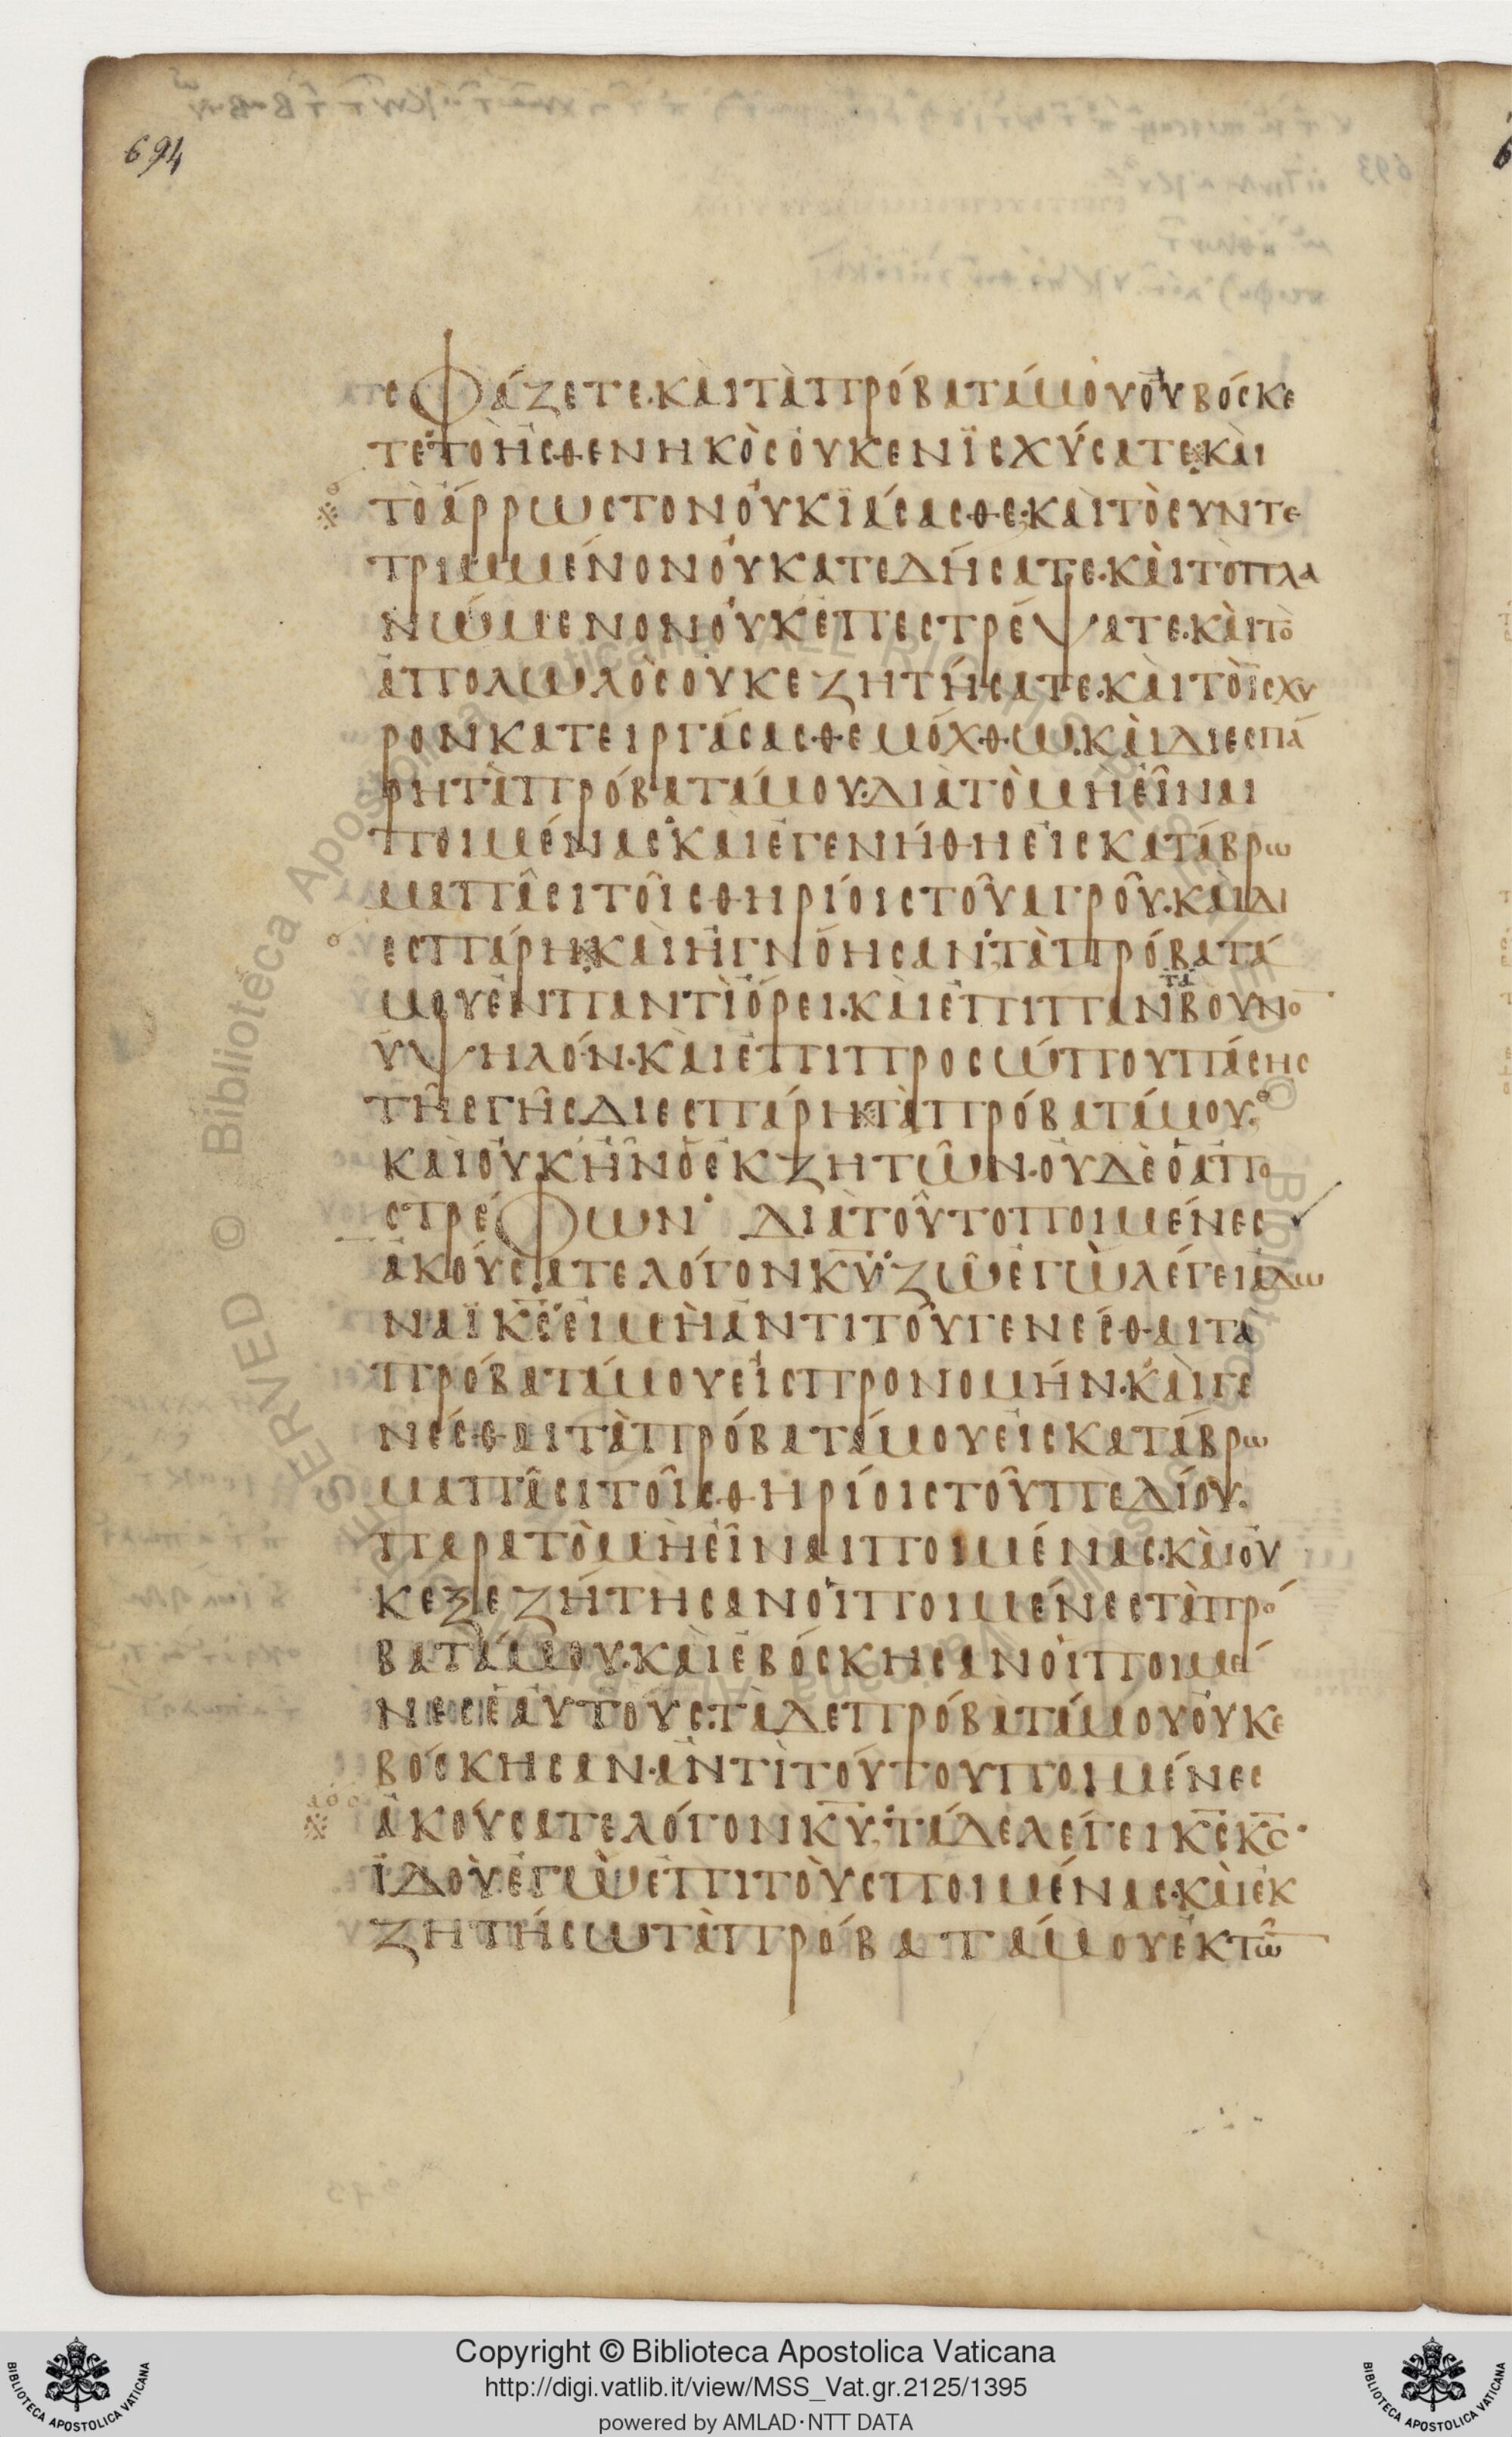 694
τεφάζετε·καὶτὰπρόβατάμουὀυβόσκε
τε·τὸἠσθενηκὸςὀυκενϊσχύσατε·καὶ
τὸἄρρωστονὀυκϊάσασθε·καὶτὸσυντε
τριμμένονὀυκατεδήσατε·καὶτὸπλα
νώμενονὀυκἐπεστρέψατε·καὶτὸ
ἀπολωλὸςὀυκεζητήσατε·καὶτὸϊσχυ
ρονκατειργάσασθεμόχθω·καὶδιεσπά
ρητὰπρόβατάμου·διὰτὸμὴεἶναι
ποιμένας·καὶἐγενήθηεἰςκατάβρω
μαπᾶσιτοῖςθηρίοιςτοῦἀγροῦ·καὶδι
εσπάρη※καὶἠγνόησαν·τὰπρόβατά
μουἐνπαντὶὄρει·καὶἐπιπανταβουνο̄
ὑψηλόν·καὶἐπιπροσώπουπάσης
τῆςγῆςδιεσπάρη※τὰπρόβατάμου·
καὶοὐκἦνὁἐκζητῶν·οὐδὲὁἀπο
στρέφων· διὰτοῦτοποιμένες
ἀκούσατελόγονκ̄ῡ·ζῶἐγὼλέγειἀδω
ναϊκ̄ς̄·εἰμὴἀντιτοῦγενέσθαιτα
πρόβατάμουεἰςπρονομήν·καὶγε
νέσθαιτὰπρόβατάμουεἰςκατάβρω
μαπᾶσιτοῖςθηρίοιςτοῦπεδίου·
παρατὸμὴεἶναιποιμένας·καὶοὐ
κεξεζήτησανοἱποιμένεςτὰπρό
βατάμου·καὶἐβόσκησανοἱποιμέ
νεςἑαυτούς·τὰδεπρόβατάμουοὐκε
βόσκησαν·ἀντὶτούτουποιμένες
ἀκούσατελόγονκ̄ῡ·τάδελέγεικ̄ς̄κ̄ς̄·
ἰδοὺἐγὼἐπιτοὺςποιμένας·καὶἐκ
ζητήσωτὰπρόβατάμουἐκτῶ̄
Copyright © Biblioteca Apostolica Vaticana
http://digi.vatlib.it/view/MSS_Vat.gr.2125/1395
powered by AMLAD·NTT DATA